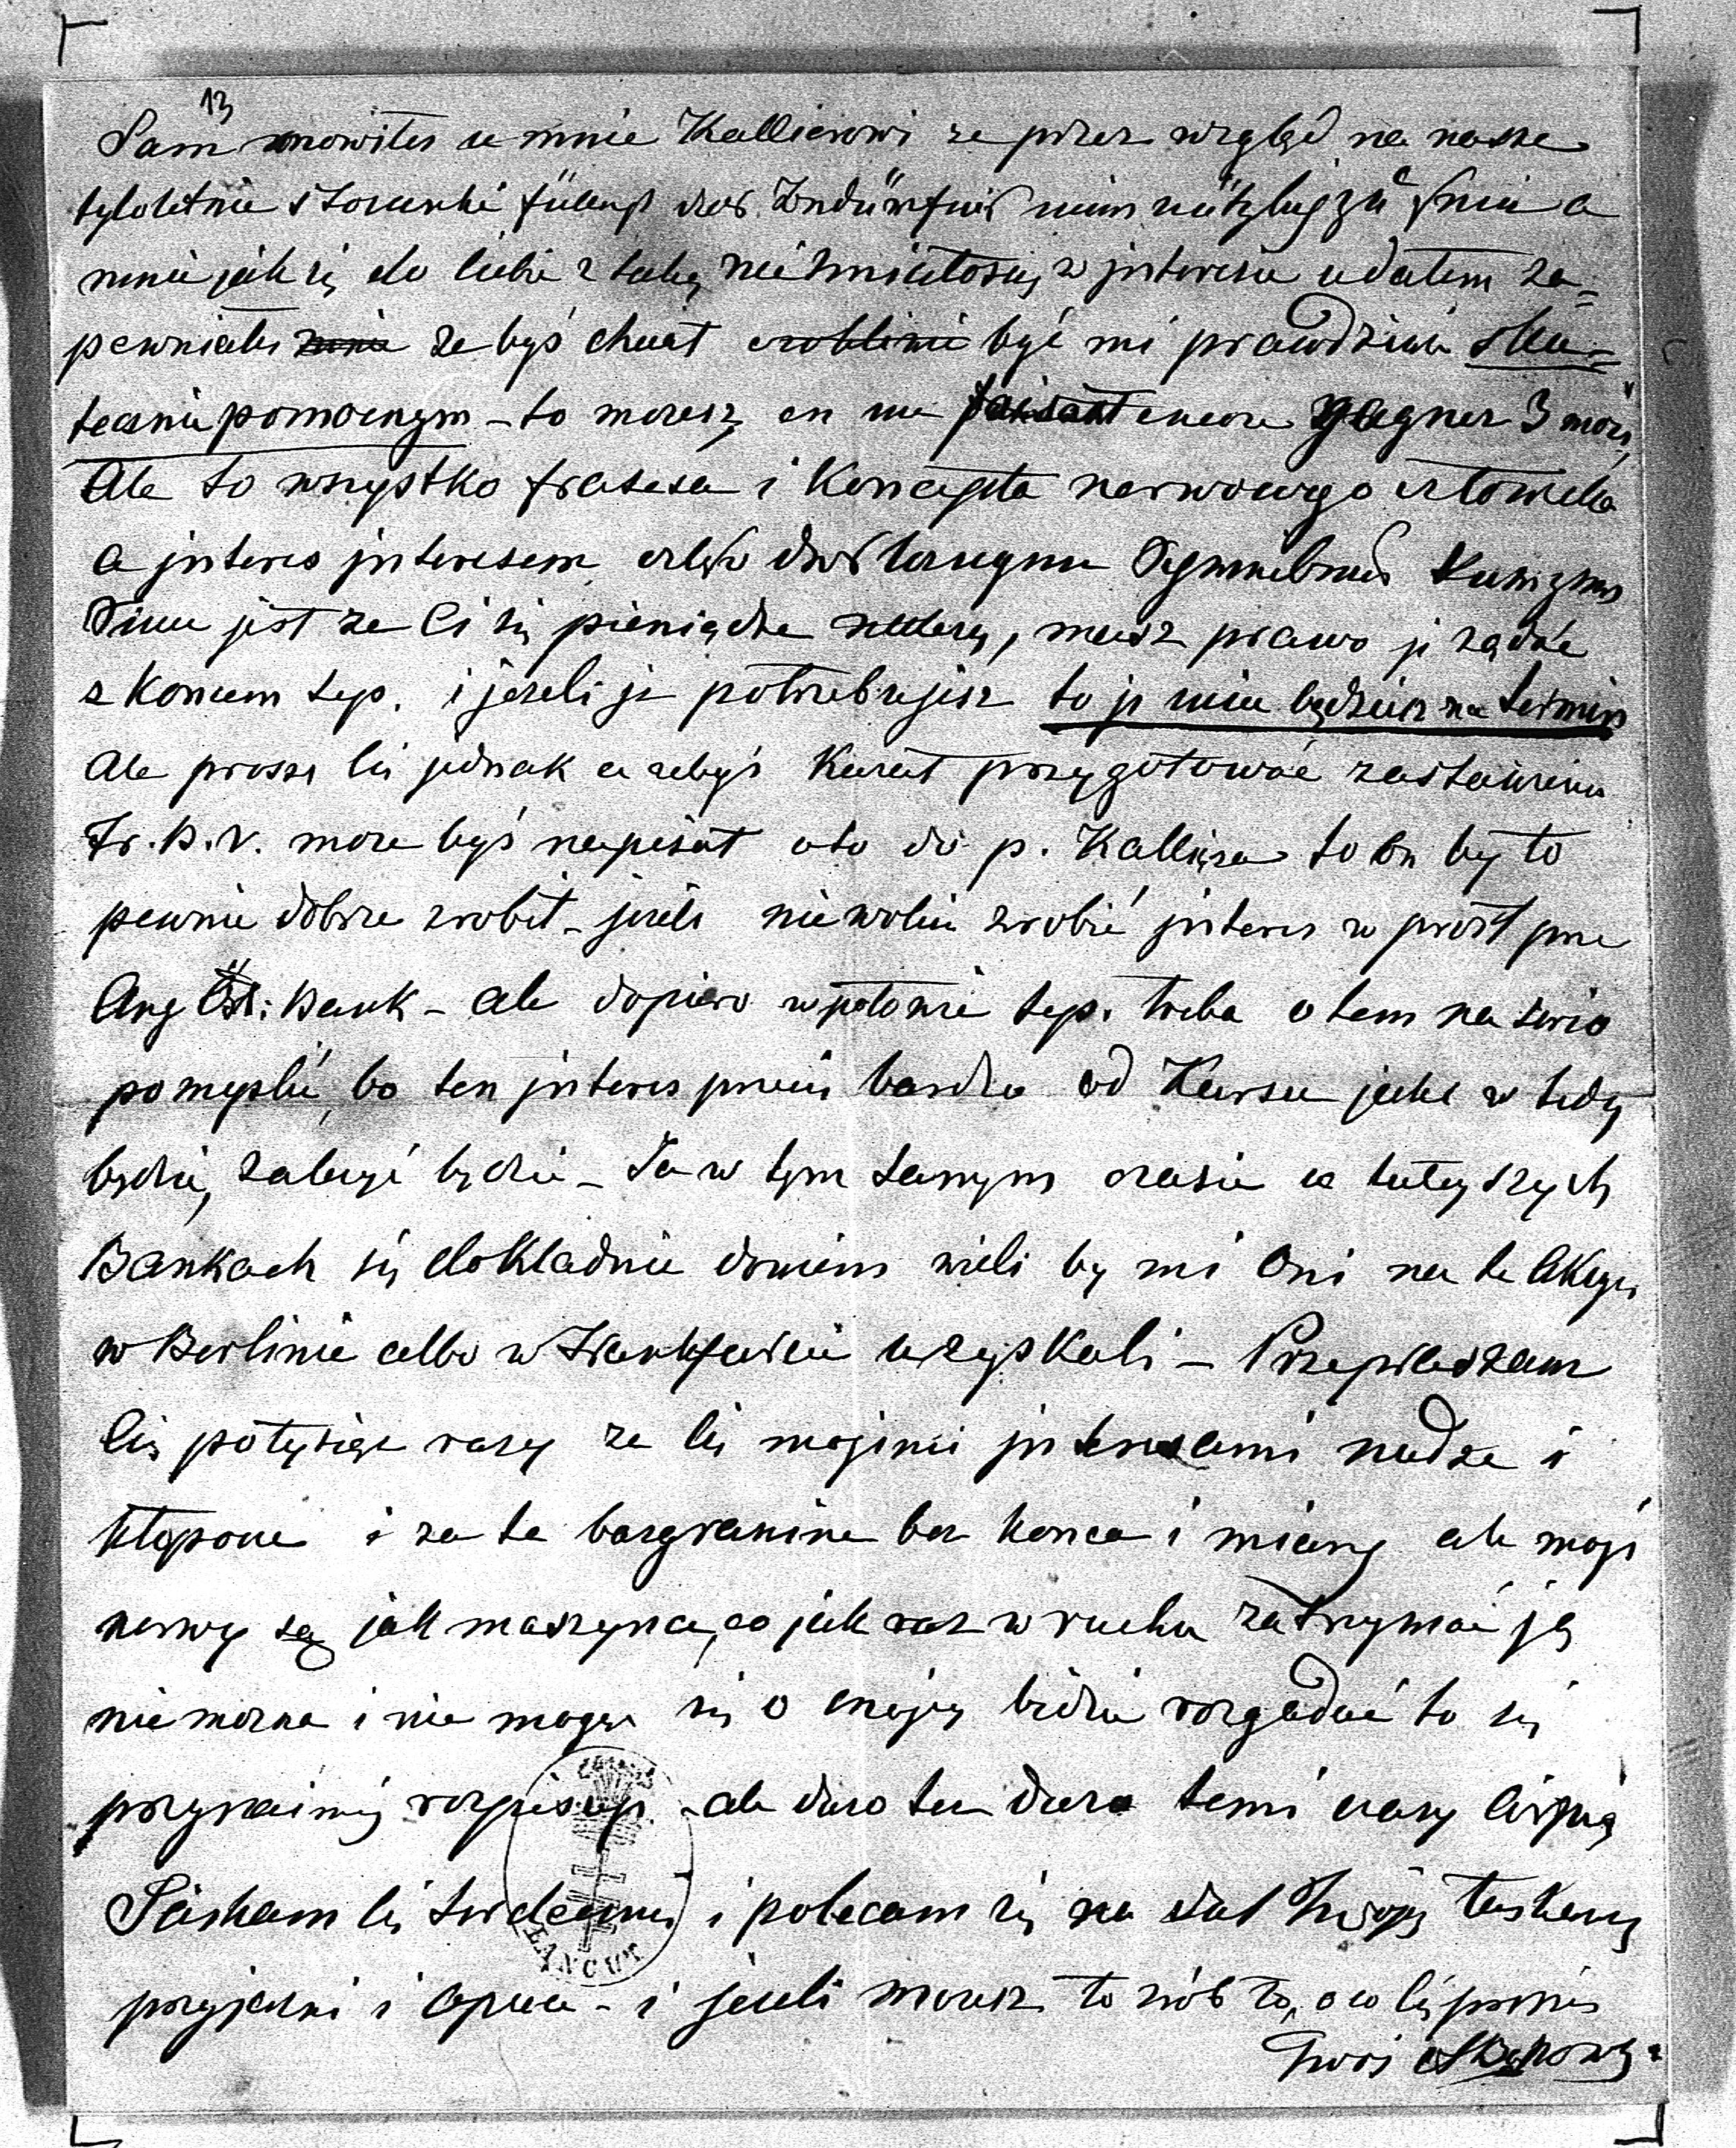 13
Sam mowiłes u mnie Kallierowi ze przez wzgląd na nasze
tyloletnie stosunki das a
mnie jak się do Ciebie z taką nieśmiałością w jnteresie udałem za=
pewniałes ze byś chciał być mi prawdziwie sku=
tecznie pomocnym – to mozesz en me faisant encore gagner 3 mois
Ale to wszystko frazesa i Koncepta nerwowego człowieka
a jnteres jnteresem
jest ze Ci się pieniądze nalezą, masz prawo je ządać
z Koncem sep. i jezeli je potrzebujesz to je miec będziesz na termin
Ale proszę Cię jednak a zebyś Kazał przygotować zastawienie
Fr. B. V. moze byś napisał oto do p. Kalliera to on by to
pewnie dobrze zrobił – jezeli niewolisz zrobić jnteres w prost prze
Ang Öst: Bank – ale dopiero w połowie sep. trzeba o tem na serio
pomyslić, bo ten jnteres bardzo od Kursu jaki w tedy
będzie, zalezyć będzie – Ja w tym samym czasie u tutejszych
Bankach się dokładnie dowiem wieli by mi Oni na te Akcye
w Berlinie albo w Frankfurcie uzyskali – Przepraszam
Cię potysiąc razy ze Cię mojemi jnteresami nudzę i
kłopocę i za te bazgraninę bez konca i miary ale moje
nerwy są jak maszyna, co jak raz w ruchu zatrzymać ją
niemozna i nie mogąc się o mojej biedzie rozgadać to się
przynaimniej rozpisuję – ale duzo tu temi czasy cierpię
Sciskam Cię serdecznie i polecam się na dal Twojej łaskawej
przyjazni i opiece – i jezeli mozesz to zrób to, o co Cię proszę
Twoj
ŁAŃCUT